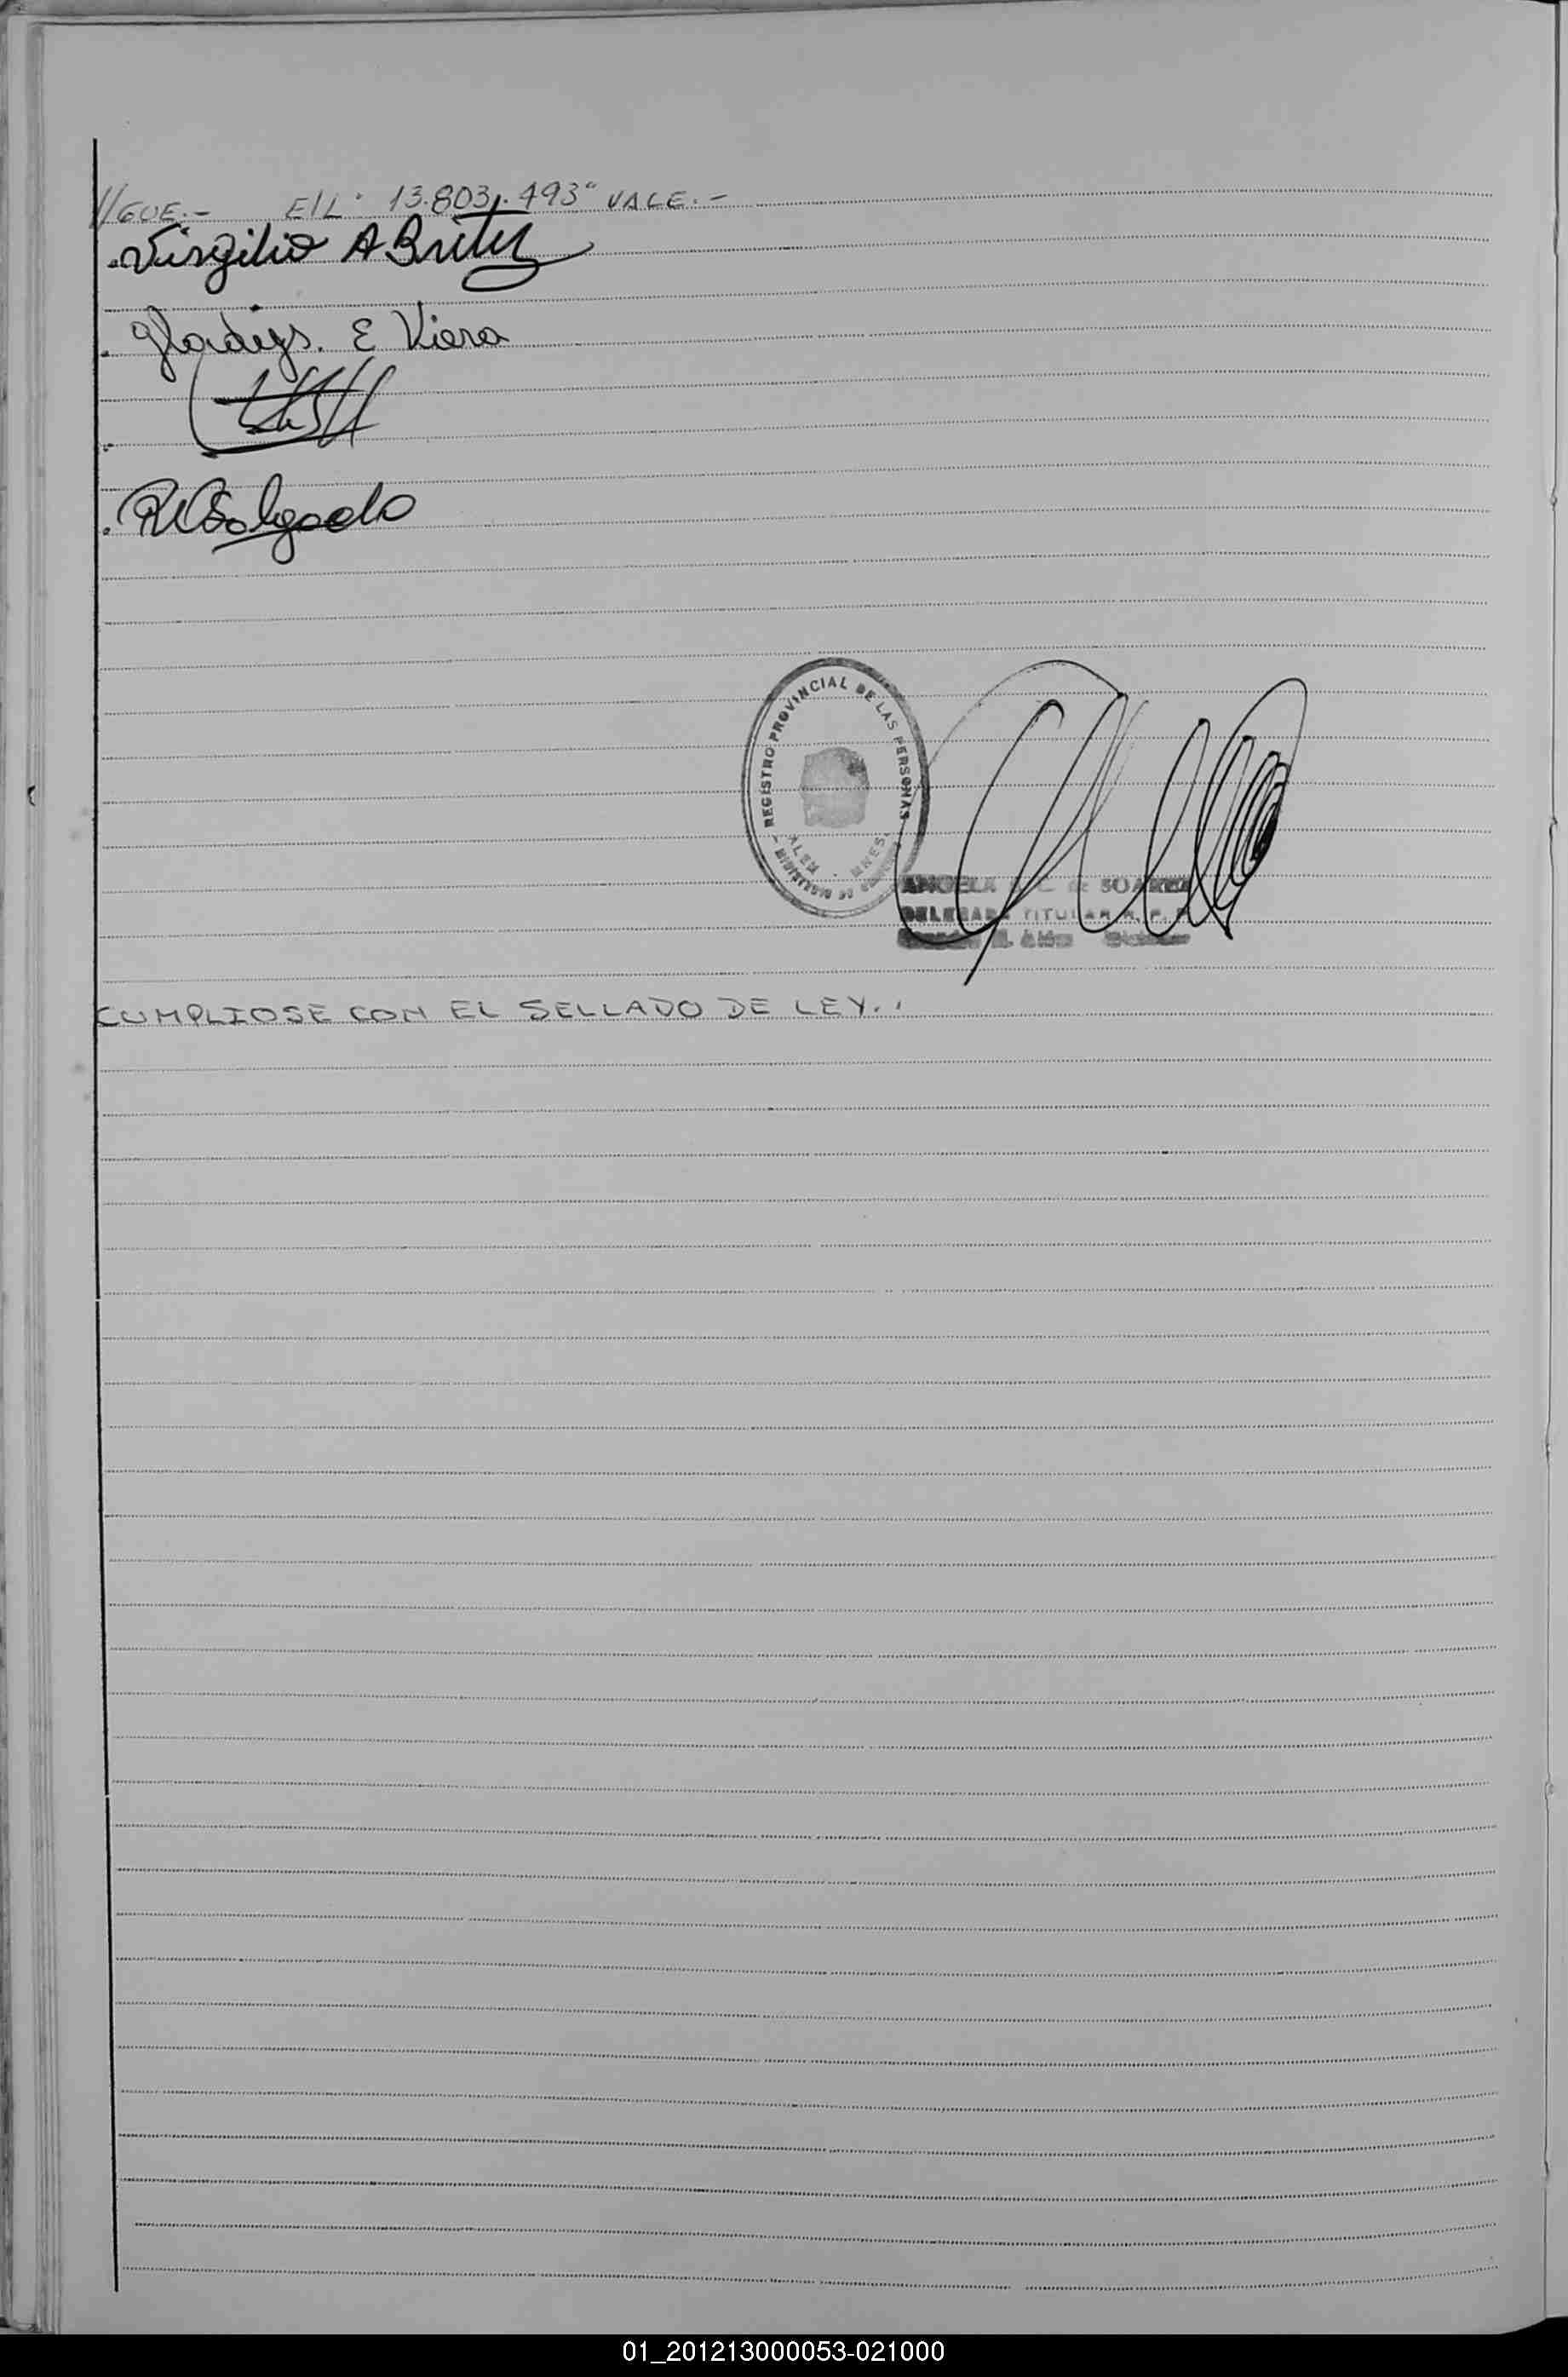 //GUE.- E/L: 13.803.493" VALE.-
Virgilio A Britez
Gladys. E Viera
RCSalgado
REGISTRO PROVINCIAL DE LAS PERSONAS
ALEM - MNES.
ANGELA C. de SOAREZ
DELEGADA TITULAR R. P. P.
CUMPLIOSE CON EL SELLADO DE LEY..
01_201213000053-021000